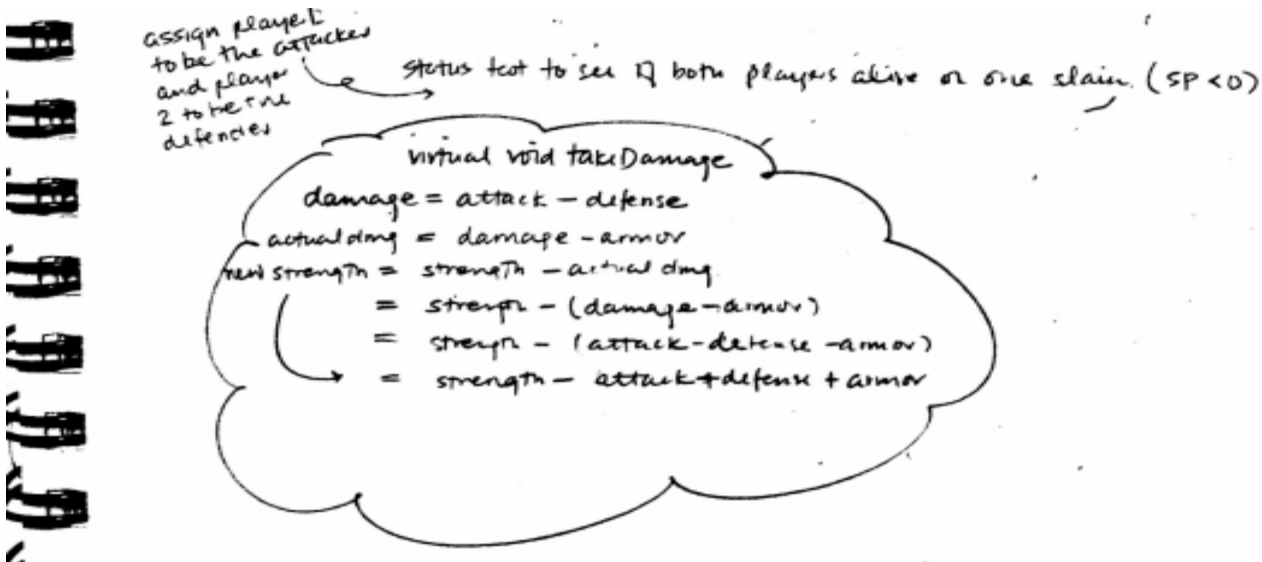 assign player 1
to be the attacker
and player
2 to be the
defender
status test to see if both players alive or one slain (SP < 0)
virtual void takeDamage
damage = attack - defense
actual dmg = damage - armor
new strength = strength - actual dmg
= strength - (damage - armor)
= strength - (attack - defense - armor)
= strength - attack + defense + armor